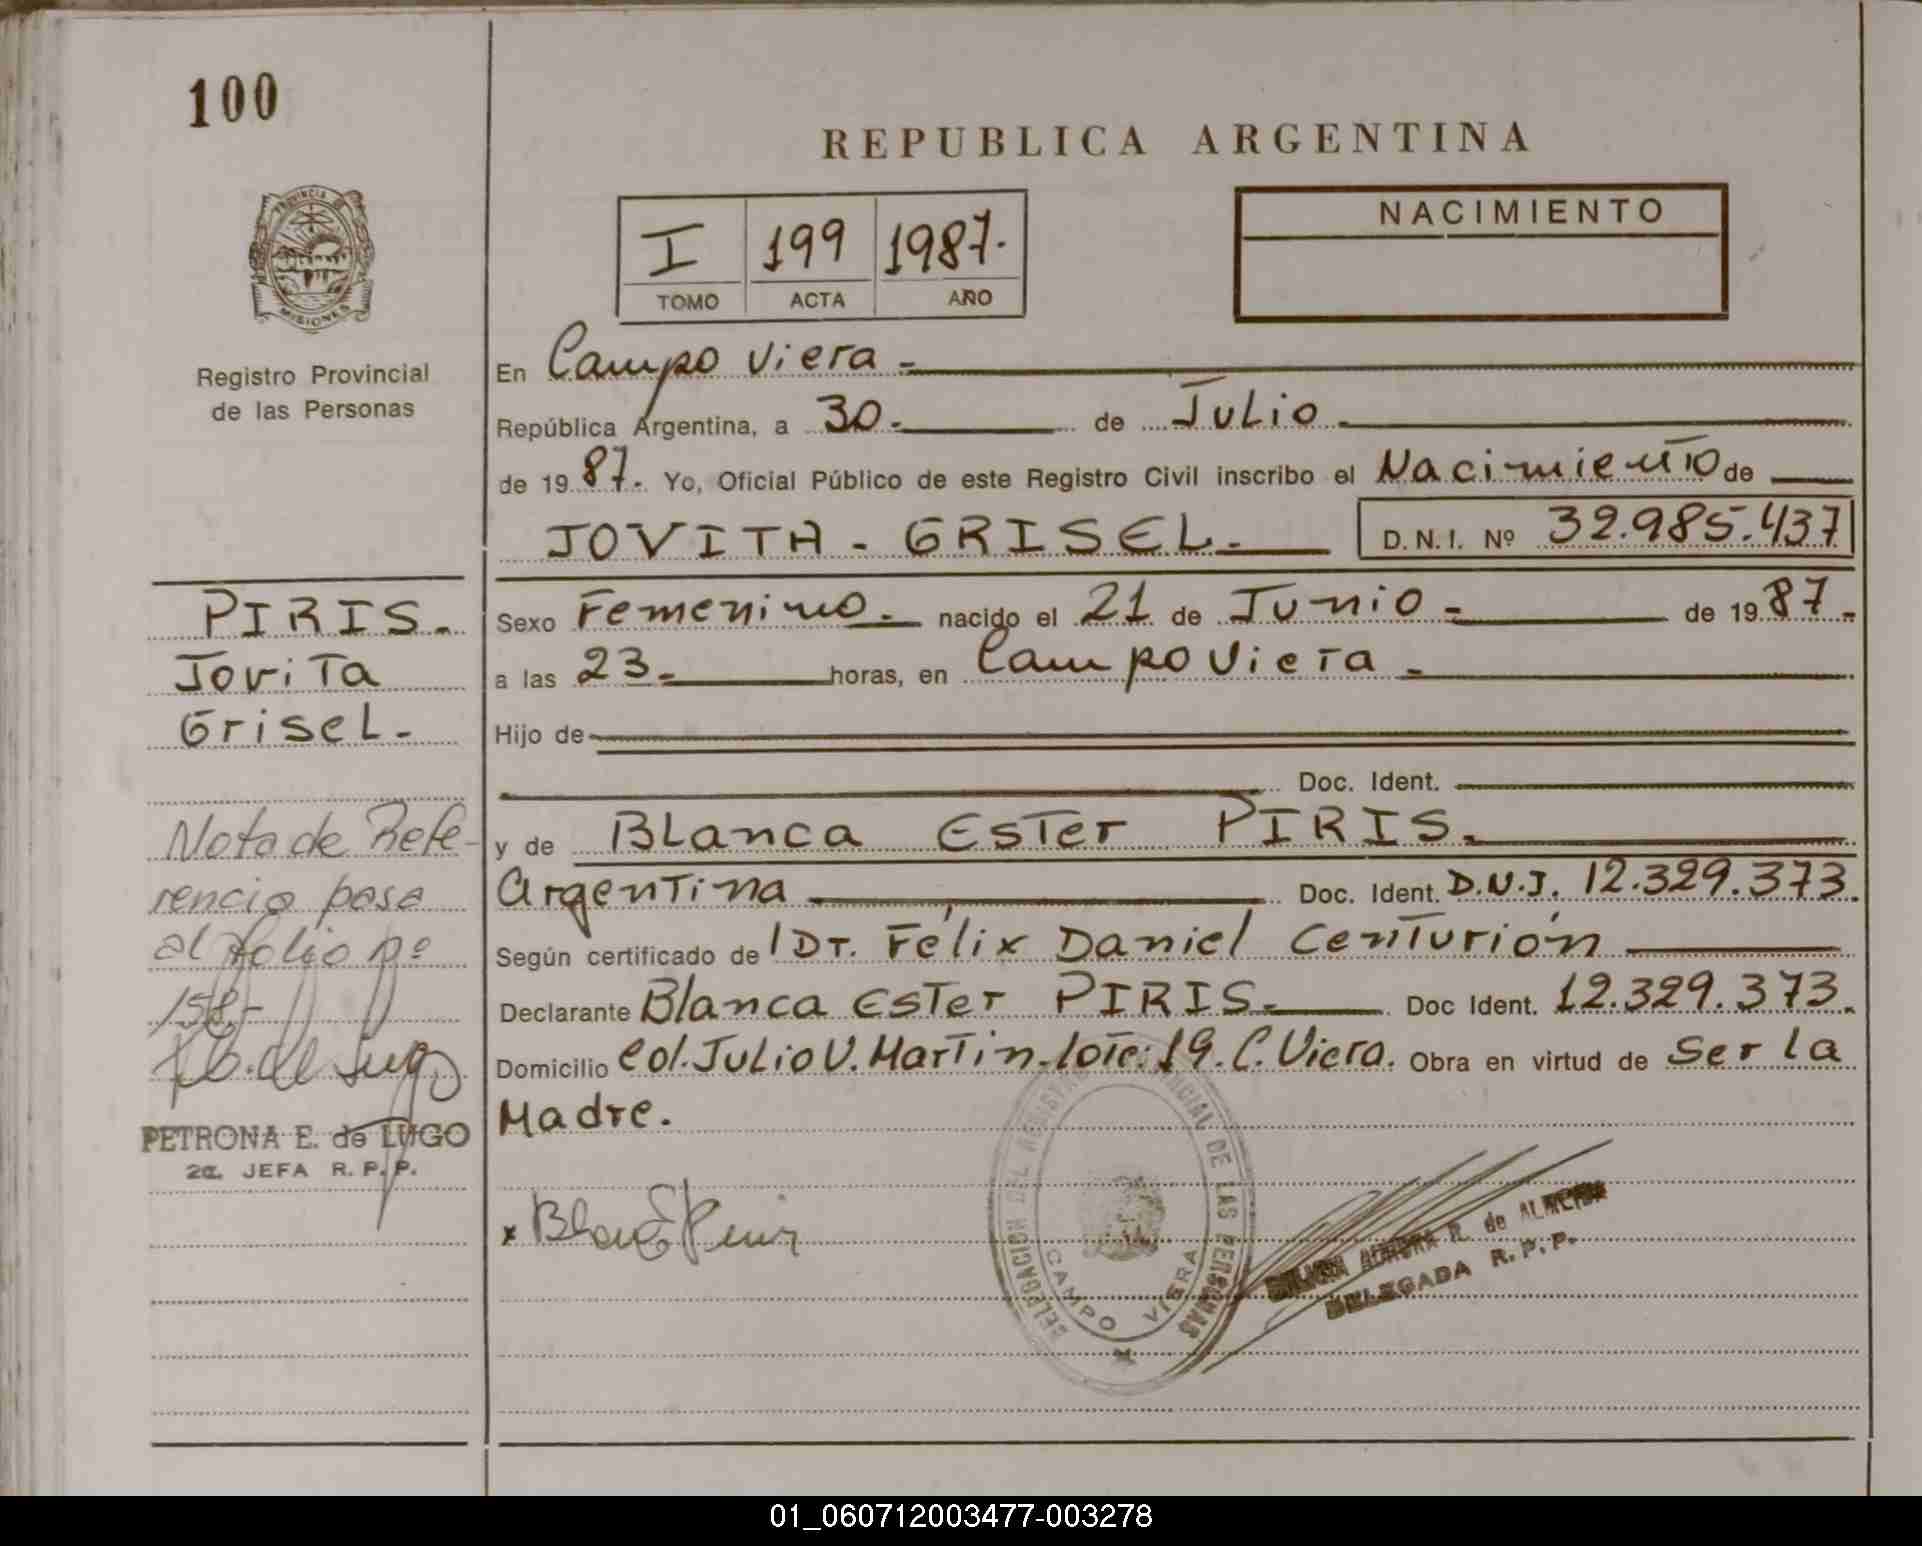 100
REPUBLICA ARGENTINA
PROVINCIA DE
MISIONES
Registro Provincial
de las Personas
I 199 1987.
TOMO ACTA AÑO
NACIMIENTO
En Campo Viera -
República Argentina, a 30. de Julio
de 1987. Yo, Oficial Público de este Registro Civil inscribo el Nacimiento de
JOVITA - GRISEL. D. N. I. Nº 32.985.437
PIRIS.
Jovita
Grisel.
Sexo Femenino. nacido el 21 de Junio - de 1987.
a las 23. horas, en Campo Viera -
Hijo de
Doc. Ident.
y de Blanca Ester PIRIS.
Argentina Doc. Ident. D.N.I. 12.329.373.
Según certificado de l Dr. Félix Daniel Centurión
Declarante Blanca Ester PIRIS. Doc Ident. 12.329.373.
Domicilio Col. Julio U. Martin. lote: 19. C. Viera. Obra en virtud de Ser la
Madre.
Nota de Refe-
rencia pasa
al folio nº
158-
PETRONA E. de LUGO
2a. JEFA R. P. P.
x Blanca E Piris
DELEGACION DEL REGISTRO PROVINCIAL DE LAS PERSONAS
CAMPO VIERA
R. de ALMEIDA
DELEGADA R. P. P.
01_060712003477-003278